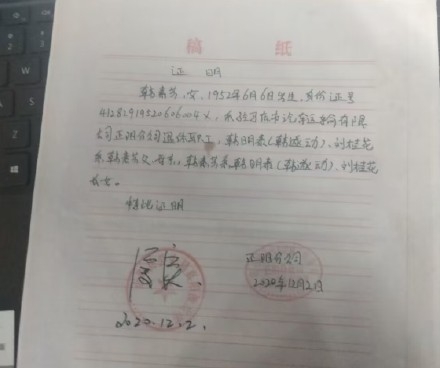 稿 纸
证 明
韩素芳,女,1952年6月6日出生,身份证号
41282919520606004X,系驻马店市汽车运输有限
公司正阳分公司退休职工,韩明泰(韩盛动)、刘桂花
系韩素芳父母亲。韩素芳系韩明泰(韩盛动)、刘桂花
长女。
特此证明
正阳分公司
2020年12月2日
2020.12.2.